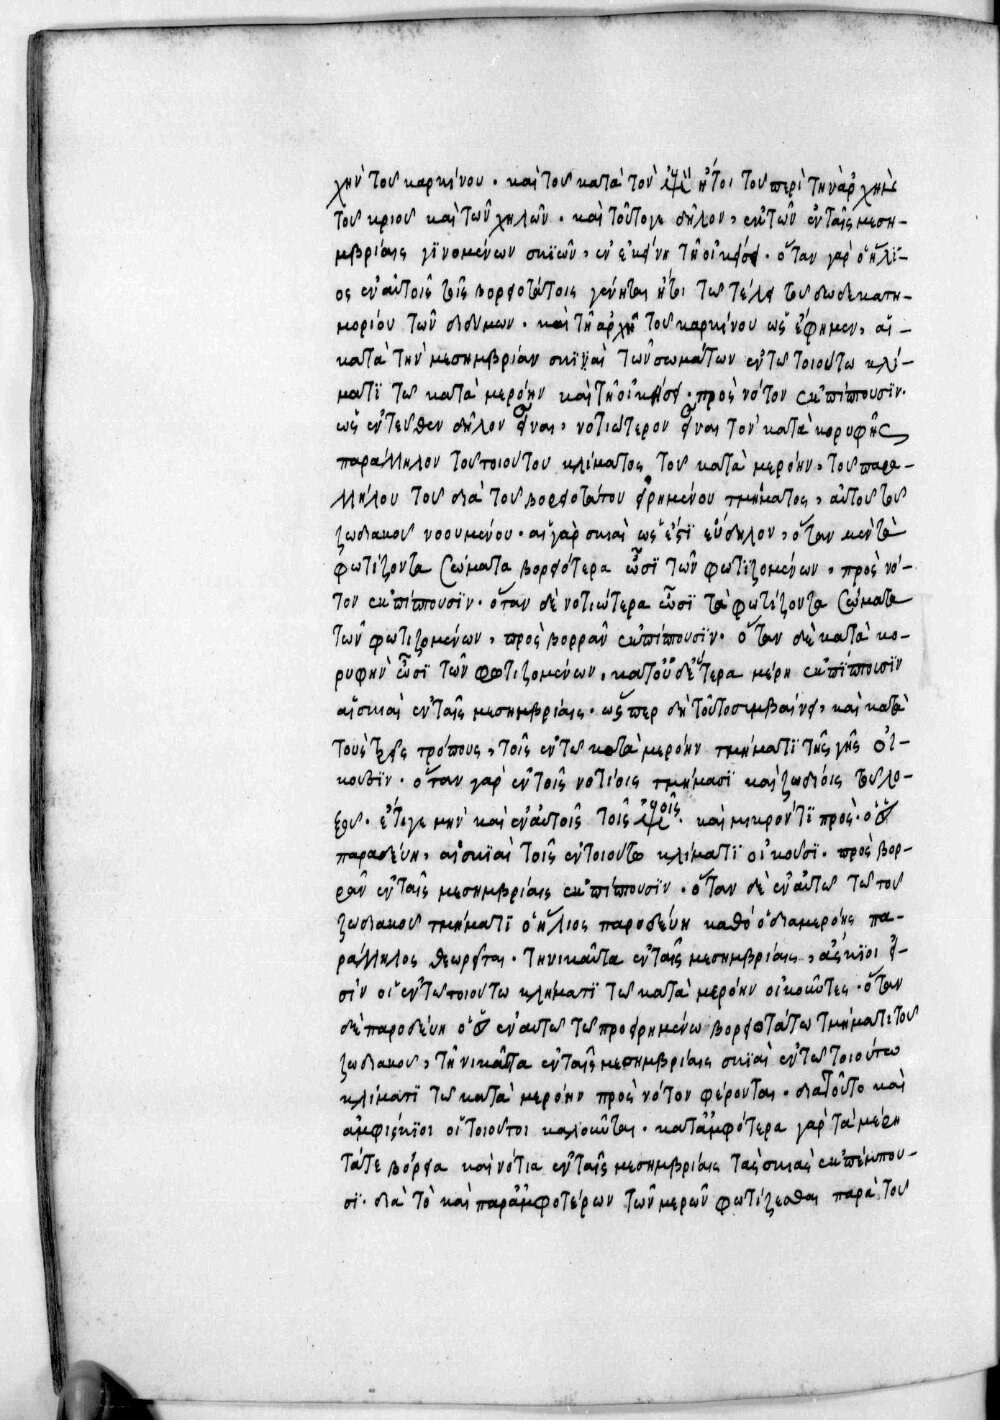 χὴν τοῦ καρκίνου · καὶ τοῦ κατὰ τὸν ἤτοι τοῦ περὶ τὴν ἀρχὴν
τοῦ κριοῦ καὶ τῶν χηλῶν · καὶ τοῦτο γε δῆλον, ἐκ τῶν ἐν ταῖς μεση-
μβρίαις γϊνομένων σκϊῶν, ἐν ἐκείνη τῆ οἰκήσει · ὅταν γὰρ ὁ ἥλϊ-
ος ἐν αὐτοῖς τοῖς βορειοτάτοις γένηται ἤτοι τῶ τέλει τοῦ δωδεκατη-
μορίου τῶν διδύμων · καὶ τῆ ἀρχῆ τοῦ καρκίνου ὡς ἔφημεν, αἱ
κατὰ τὴν μεσημβρίαν σκϊαὶ τῶν σωμάτων ἐν τῶ τοιούτω κλί-
ματϊ τῶ κατὰ μερόην καὶ τῆ οἰκήσει · πρὸς νότον ἐκπίπτουσϊν ·
ὡς ἐντεῦθεν δῆλον εἶναι, νοτιώτερον εἶναι τὸν κατὰ κορυφῆς
παράλληλον τοῦ τοιούτου κλίματος τοῦ κατὰ μερόην, τοῦ παρα-
λλήλου τοῦ διὰ τοῦ βορειοτάτου εἰρημένου τμήματος, αὐτοῦ τοῦ
ζωδιακοῦ νοουμένου · αἱ γὰρ σκιαὶ ὡς ἐστὶ εὔδηλον, ὅταν μὲν τὰ
φωτίζοντα σώματα βορειότερα ὦσϊ τῶν φωτϊζομένων, πρὸς νό-
τον ἐκπίπτουσϊν · ὅταν δὲ νοτιώτερα ὦσϊ τὰ φωτίζοντα σώματα
τῶν φωτιζομένων, πρὸς βορρᾶν ἐκπίπτουσϊν · ὅταν δὲ κατὰ κο-
ρυφὴν ὦσϊ τῶν φωτιζομένων, κατ' οὐδέτερα μέρη ἐκπίπτουσϊν
αἱ σκιαὶ ἐν ταῖς μεσημβρίαις · ὥσπερ δὴ τοῦτο συμβαίνει, καὶ κατὰ
τοὺς τρεῖς τρόπους, τοῖς ἐν τῶ κατὰ μερόην τμήματϊ τῆς γῆς οἰ-
κοῦσϊν · ὅταν γὰρ ἐν τοῖς νοτίοις τμήμασϊ καὶ ζωδίοις τοῦ λο-
ξοῦ · ἔτι γε μὴν καὶ ἐν αὐτοῖς τοῖς καὶ μικρόν τϊ πρὸς · ὁ
παροδεύη, αἱ σκϊαὶ τοῖς ἐν τοιούτω κλίματϊ οἰκοῦσϊ · πρὸς βορ-
ρᾶν ἐν ταῖς μεσημβρίαις ἐκπίπτουσϊν · ὅταν δὲ ἐν αὐτῶ τῶ τοῦ
ζωδιακοῦ τμήματϊ ὁ ἥλιος παροδεύη καθὸ ὁ διὰ μερόης πα-
ράλληλος θεωρεῖται · τηνικαῦτα ἐν ταῖς μεσημβρίαις, ἄσκϊοι εἰ-
σὶν οἱ ἐν τῶ τοιούτω κλήματϊ τῶ κατὰ μερόην οἰκοῦντες · ὅταν
δὲ παροδεύη ὁ ἐν αὐτῶ τῶ προειρημένω βορειοτάτω τμήματι τοῦ
ζωδιακοῦ, τηνικαῦτα ἐν ταῖς μεσημβρίαις σκϊαὶ ἐν τῶ τοιούτω
κλίματϊ τῶ κατὰ μερόην πρὸς νότον φέρονται · διατοῦτο καὶ
ἀμφίσκϊοι οἱ τοιοῦτοι καλοῦνται · κατ' ἀμφότερα γὰρ τὰ μέρη
τά τε βόρεια καὶ νότια ἐν ταῖς μεσημβρίαις τὰς σκιὰς ἐκπέμπου-
σϊ · διὰ τὸ καὶ παρ' ἀμφοτέρων τῶν μερῶν φωτίζεσθαι παρὰ τοῦ